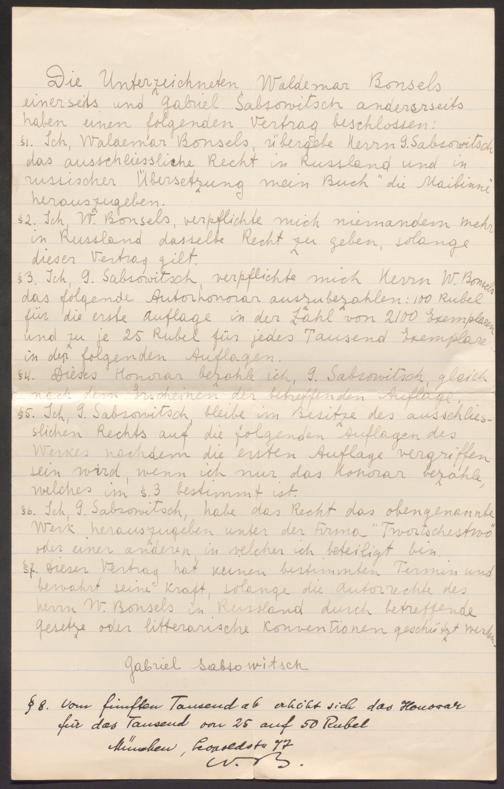 Die Unterzeichneten, Waldemar Bonsels
einerseits und Gabriel Sabsowitsch andererseits
haben einen folgenden Vertrag beschlossen:
§1. Ich, Waldemar Bonsels, übergebe Herrn G. Sabsowitsch
das ausschliessliche Recht in Russland und in
russischer Übersetzung mein Buch "die
herauszugeben.
§2. Ich, W. Bonsels, verpflichte mich niemandem mehr
in Russland dasselbe Recht zu geben, solange
dieser Vertrag gilt.
§3. Ich, G. Sabsowitsch, verpflichte mich Herrn W. Bonsels
das folgende Autorhonorar auszubezahlen: 100 Rubel
für die erste Auflage in der Zahl von 2100 Exemplaren
und zu je 25 Rubel für jedes Tausend Exemplare
in den folgenden Auflagen.
§4. Dieses Honorar bezahle ich, G. Sabsowitsch, gleich
nach dem Erscheinen der betreffenden Auflage.
§5. Ich, G. Sabsowitsch, bleibe im Besitze des ausschlies-
slichen Rechts auf die folgenden Auflagen des
Werkes nachdem die ersten Auflage vergriffen
sein wird, wenn ich nur das Honorar bezahle,
welches im §.3 bestimmt ist.
§6. Ich, G. Sabsowitsch, habe das Recht das obengenannte
Werk herauszugeben unter der Firma "Tworschestwo"
oder einer anderen, in welcher ich beteiligt bin.
§7. Dieser Vertrag hat keinen bestimmten Termin und
bewahrt seine Kraft, solange die Autorrechte des
Herrn W. Bonsels in Russland durch betreffende
Gesetze oder litterarische Konventionen geschützt werden.
Gabriel Sabsowitsch
§ 8. Vom fünften Tausend ab erhöht sich das Honorar
für das Tausend von 25 auf 50 Rubel
München, Leopoldstr 77
W. B.